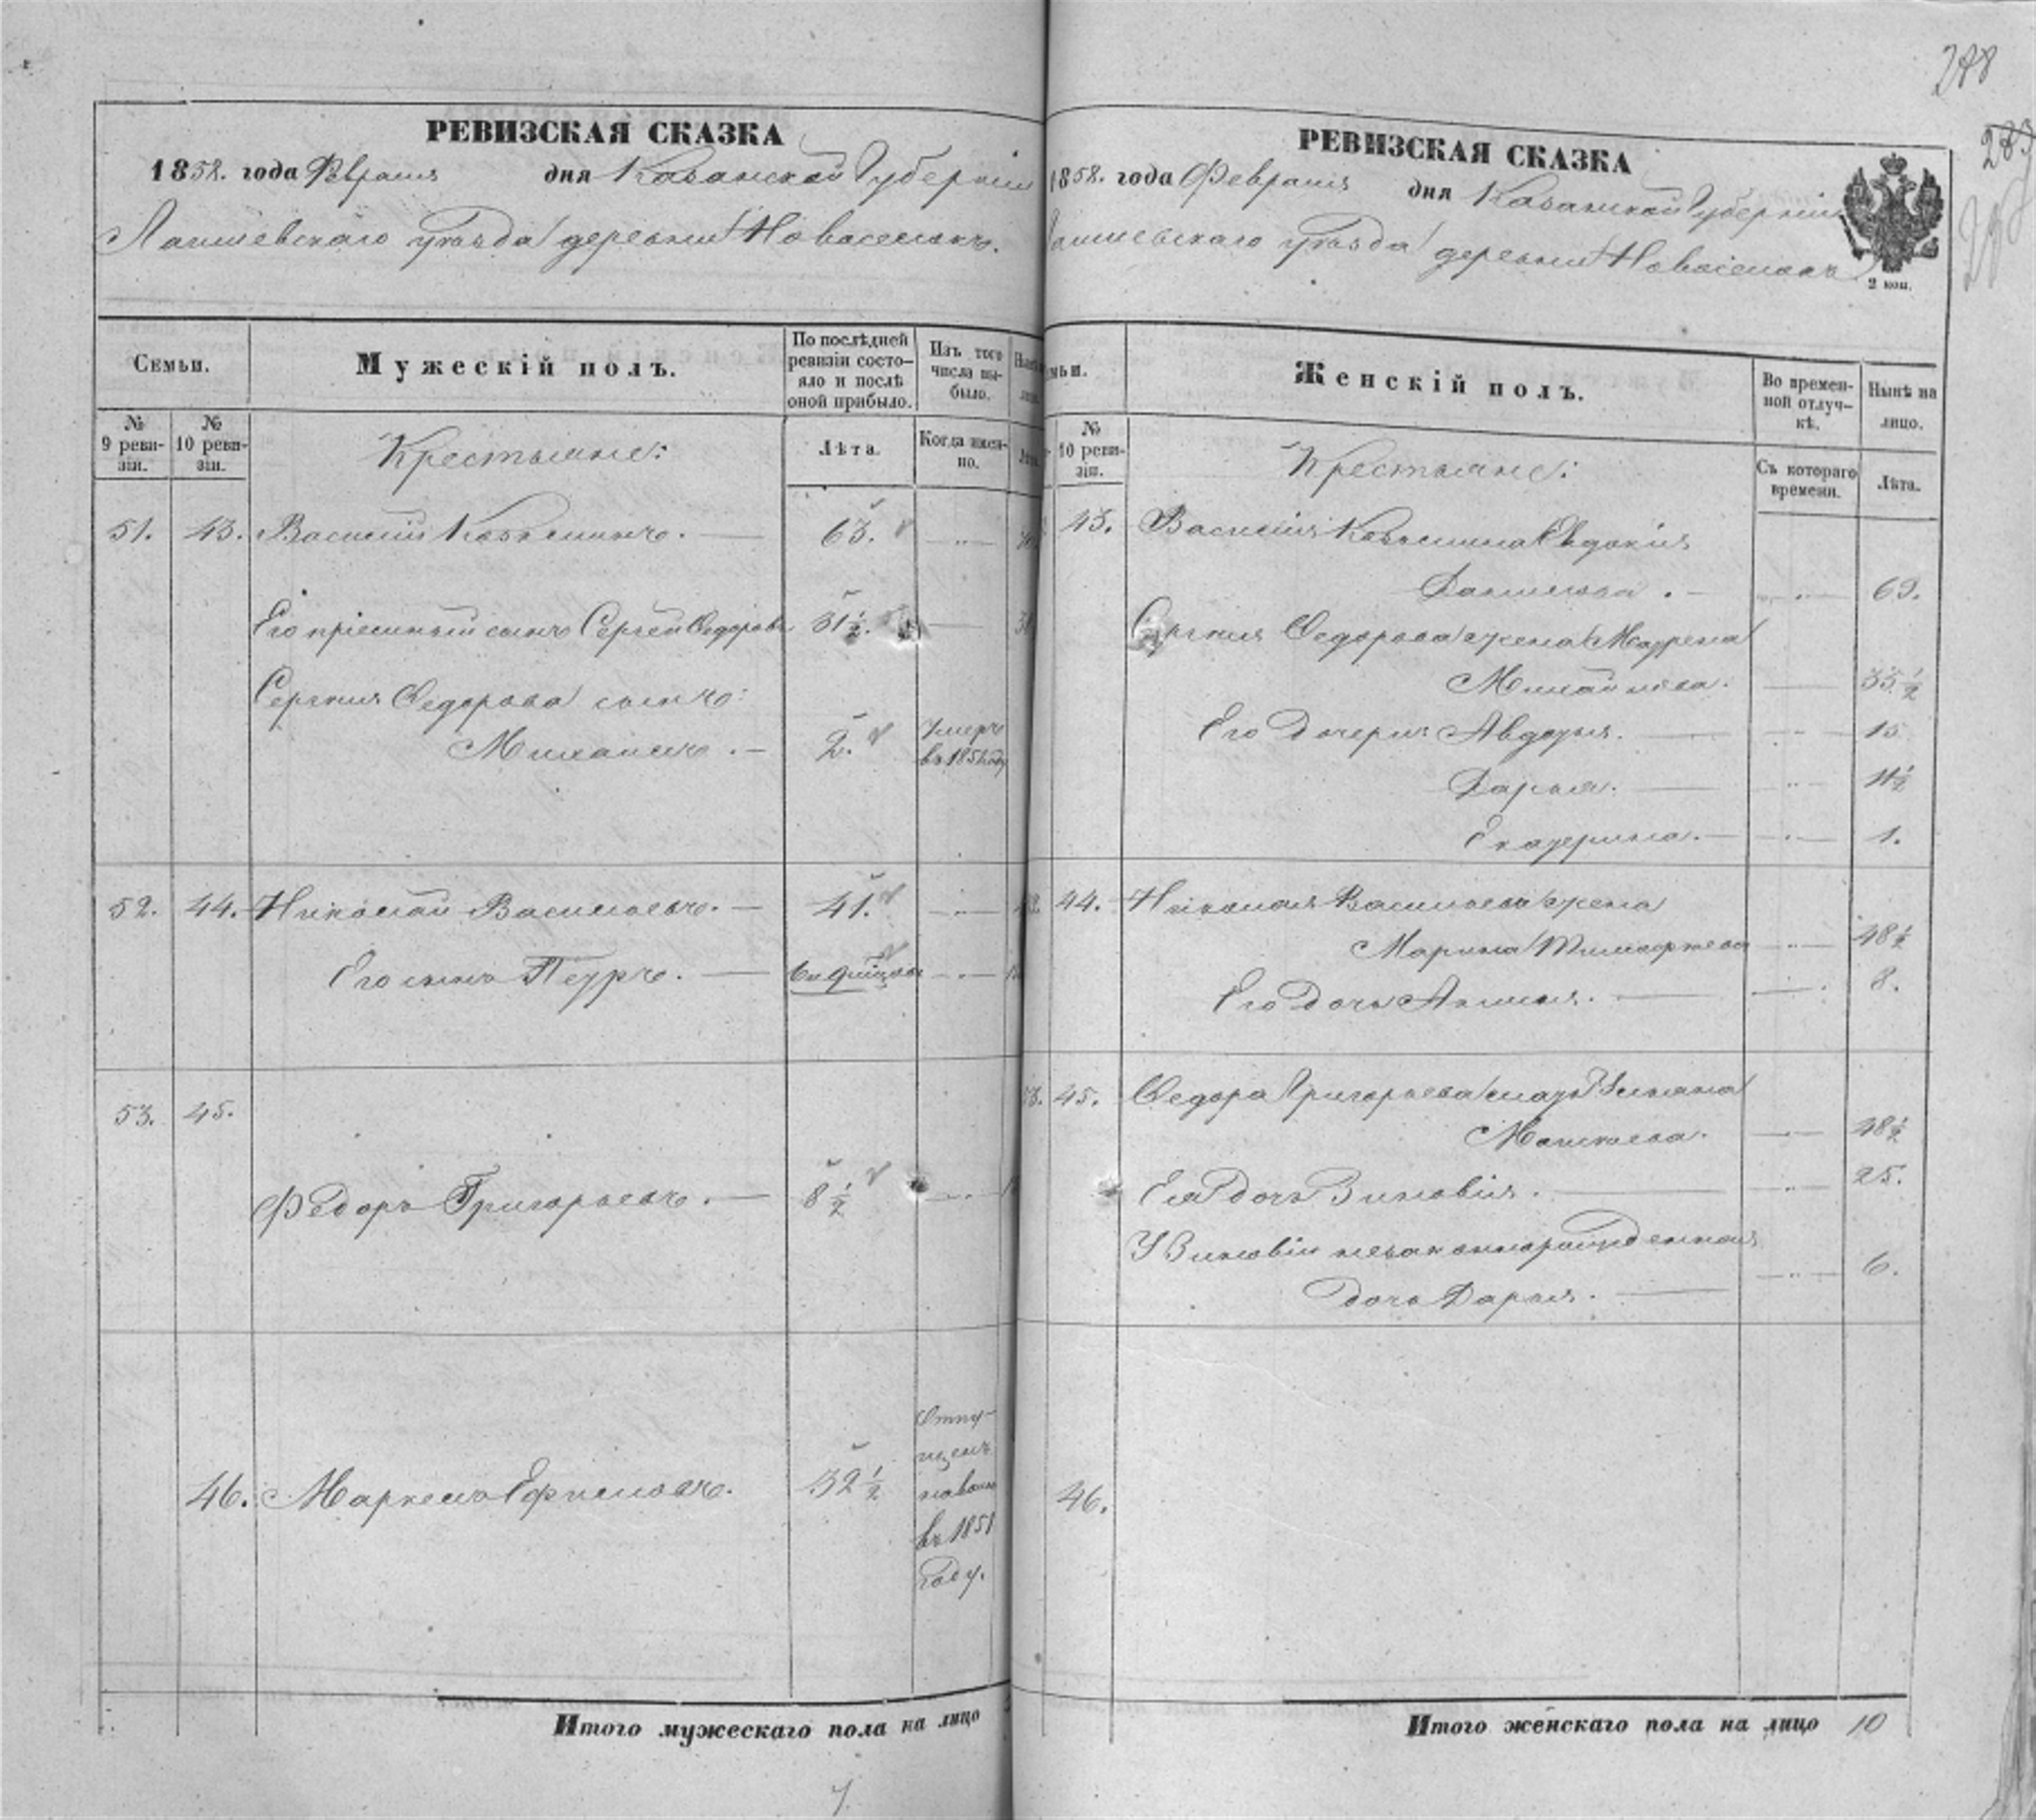 288
283
РЕВИЗСКАЯ СКАЗКА
1858. года Февраля дня Казанской Губерніи
Лаишевскаго уѣзда деревни Новоселокъ.
Семьи.
Мужескій полъ.
По послѣдней ревизіи состояло и послѣ оной прибыло.
Изъ того числа выбыло.
№ 9 ревизіи.
№ 10 ревизіи.
Крестьяне:
Лѣта.
Когда именно.
51. 43. Василій Козьминъ. 63.
Его пріемный сынъ Сергей Федоровъ 31 1/2.
Сергѣя Федорова сынъ:
Михаилъ. 2. Умеръ въ 1851 году
52. 44. Николай Васильевъ. 41.
Его сынъ Петръ. 6 и 9 мѣцовъ
53. 45.
Федоръ Григорьевъ. 8 1/2
46. Маркелъ Ефимовъ. 32 1/2
Отпущенъ
на волю
въ 1851
году.
Итого мужескаго пола на лицо
РЕВИЗСКАЯ СКАЗКА
1858. года Февраля дня Казанской Губерніи
Лаишевскаго уѣзда деревни Новоселокъ
2 коп.
Женскій полъ.
Во временной отлучкѣ.
Нынѣ на лицо.
№ 10 ревизіи.
Крестьяне:
Съ котораго времени.
Лѣта.
43. Василія Козьмина Евдокія
Данилова. 69.
Сергѣя Федорова жена Маррена
Михайлова. 35 1/2
Его дочери: Авдотья. 15
Дарья. 11 1/2
Екатерина. 1.
44. Николая Васильева жена
Марина Тимофеева 48 1/2
Его дочь Аксинья. 8.
45. Федора Григорьева мать
Моисеева. 48 1/2
Ея дочь Зиновія. 25.
У Зиновіи незаконнорожденная
дочь Дарья. 6.
46.
Итого женскаго пола на лицо 10